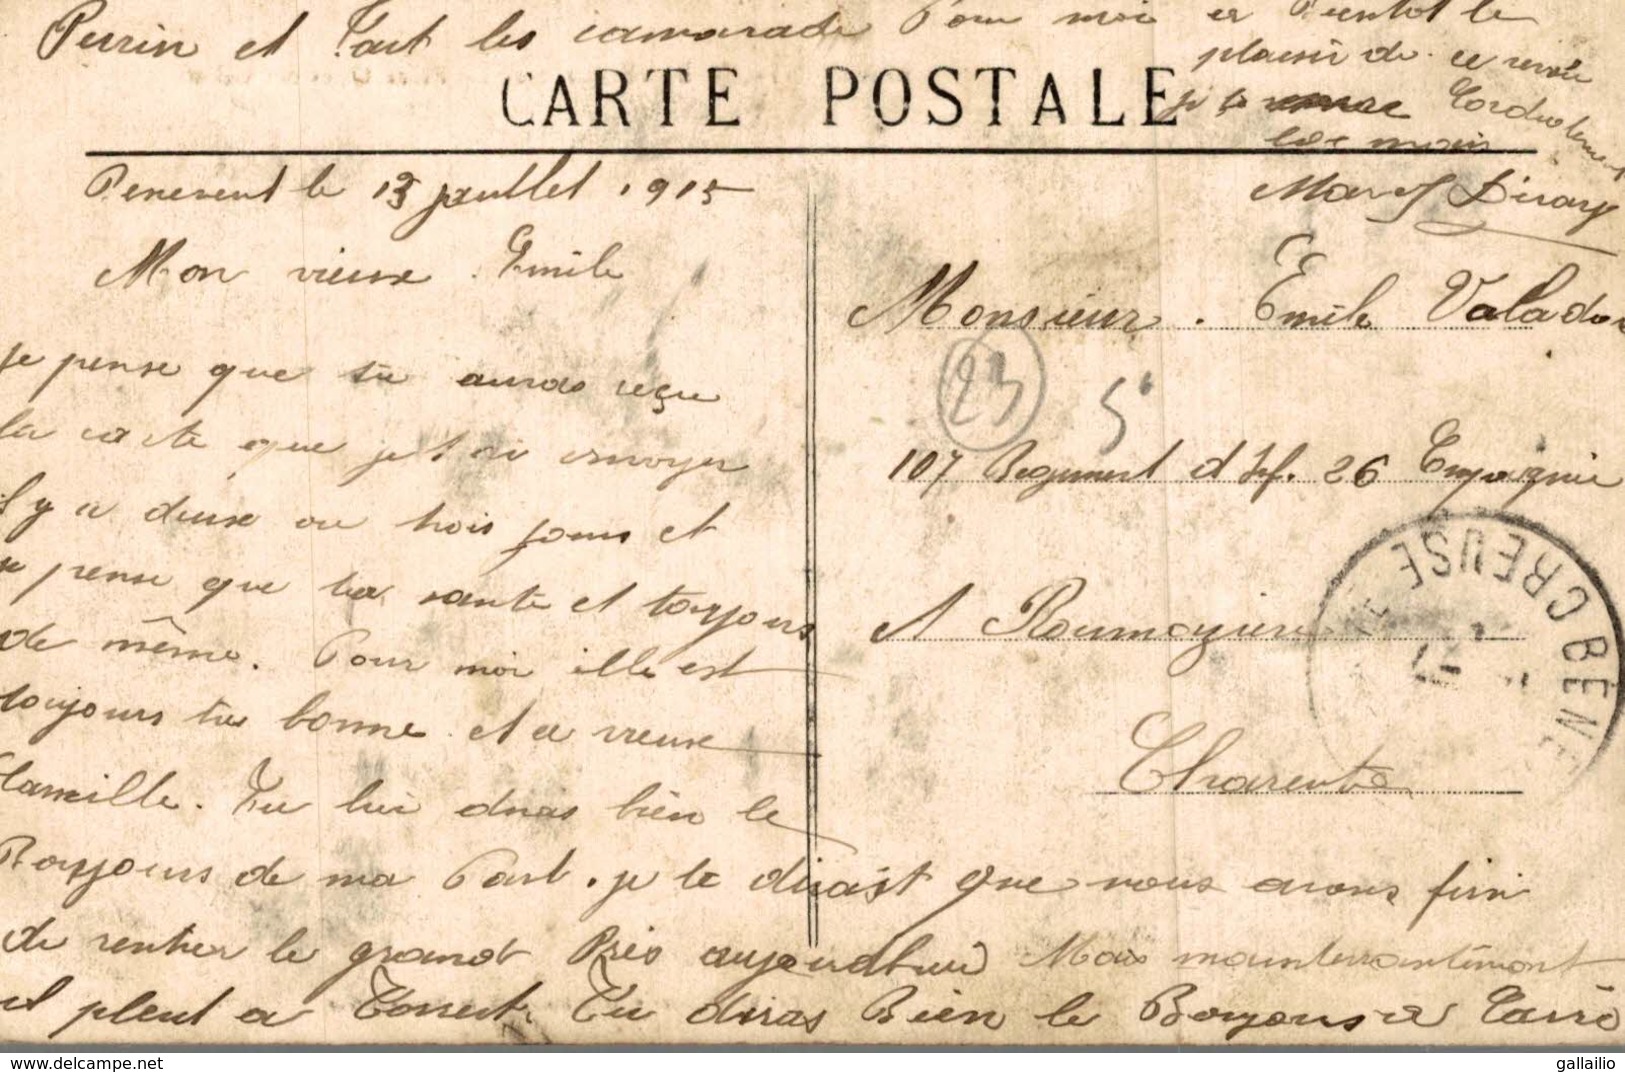 CARTE POSTALE
Benevent le 13 juillet 1915
Mon vieux Emile
Je pense que tu auras reçu
la carte que je t'ai envoyer
il y a deux ou trois jours et
je pense que ta santé et toujours
de même. Pour moi elle est
toujours tre bonne et a vieux
Camille. Tu lui diras bien le
Bonjours de ma Part. je te dirait que nous avons fini
de rentrer le grand Près aujourdhui Mais mainterrantemont
il pleut a Torrent. Tu diras Bien le Bonjours a
Perrin et Tout les camarade Pour moi et Bientot le
plaisir de ce revoir
je te serre Cordialement
les mains
Marcel
Monsieur Emile Valade
23
5
107 Regiment d Inf. 26 Compagnie
A Roumazieres
Charente
BÉNÉ
CREUSE
gallailio